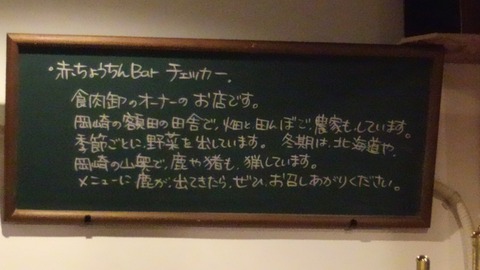 ・赤ちょうちんBar チェッカー.
食肉卸のオーナーの お店です。
岡崎の額田の田舎で,畑と田んぼで,農家も,しています。
季節ごとに,野菜を出しています。 冬期は,北海道や,
岡崎の山奥で,鹿や猪も,猟しています。
メニューに鹿が,出てきたら,ぜひ,お召しあがりください。